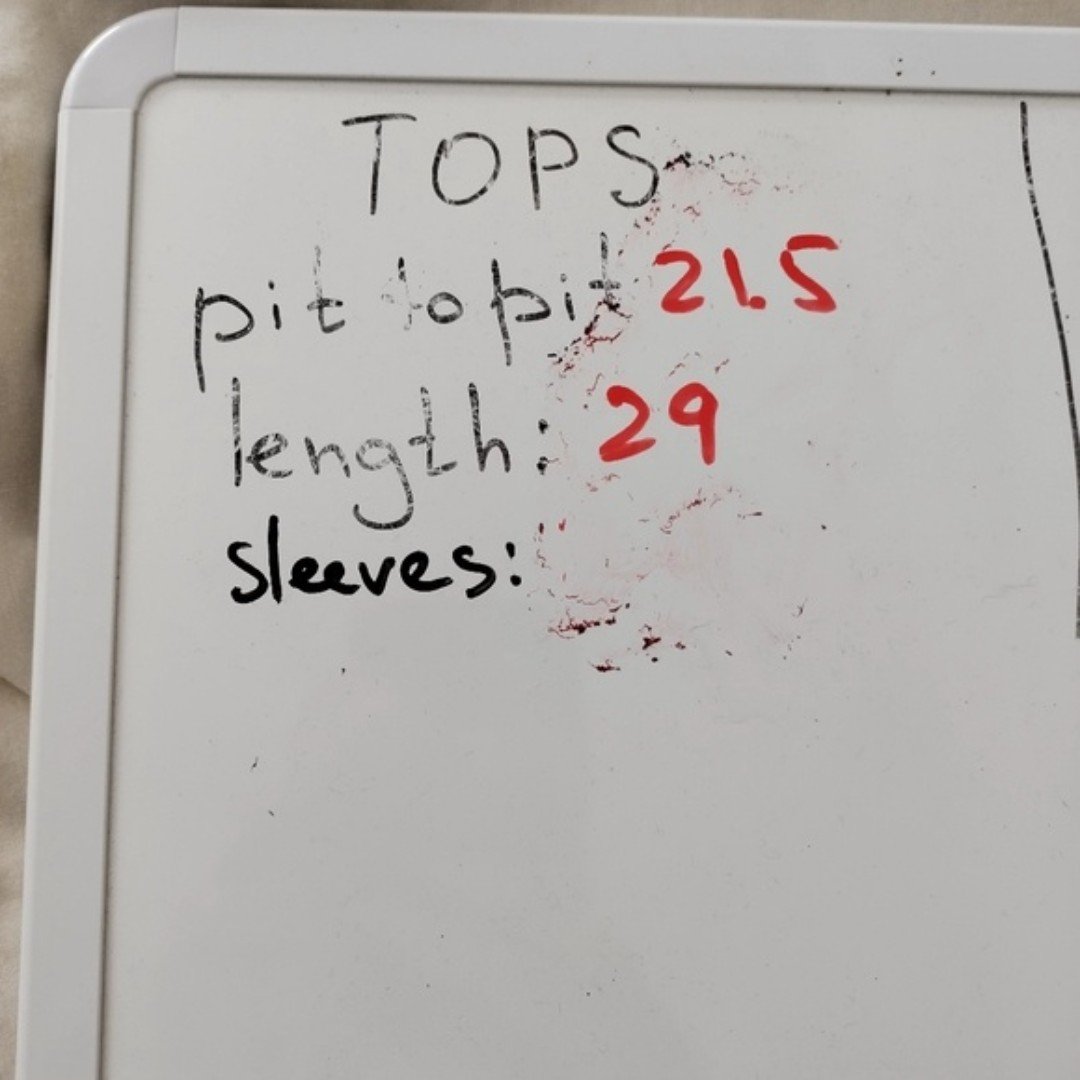 TOPS
pit to pit 21.5
length: 29
sleeves: